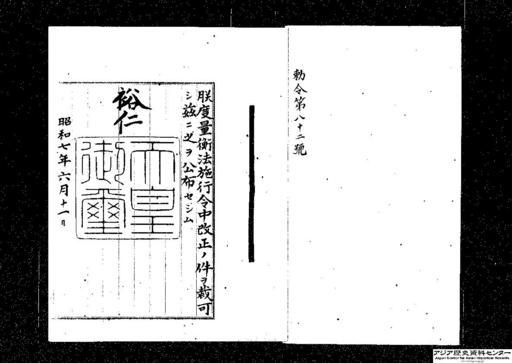 勅令第八十二號
朕度量衡法施行令中改正ノ件ヲ裁可
シ茲ニ之ヲ公布セシム
裕仁
天皇
御璽
昭和七年六月十一日
アジア歴史資料センター
Japan Center for Asian Historical Records